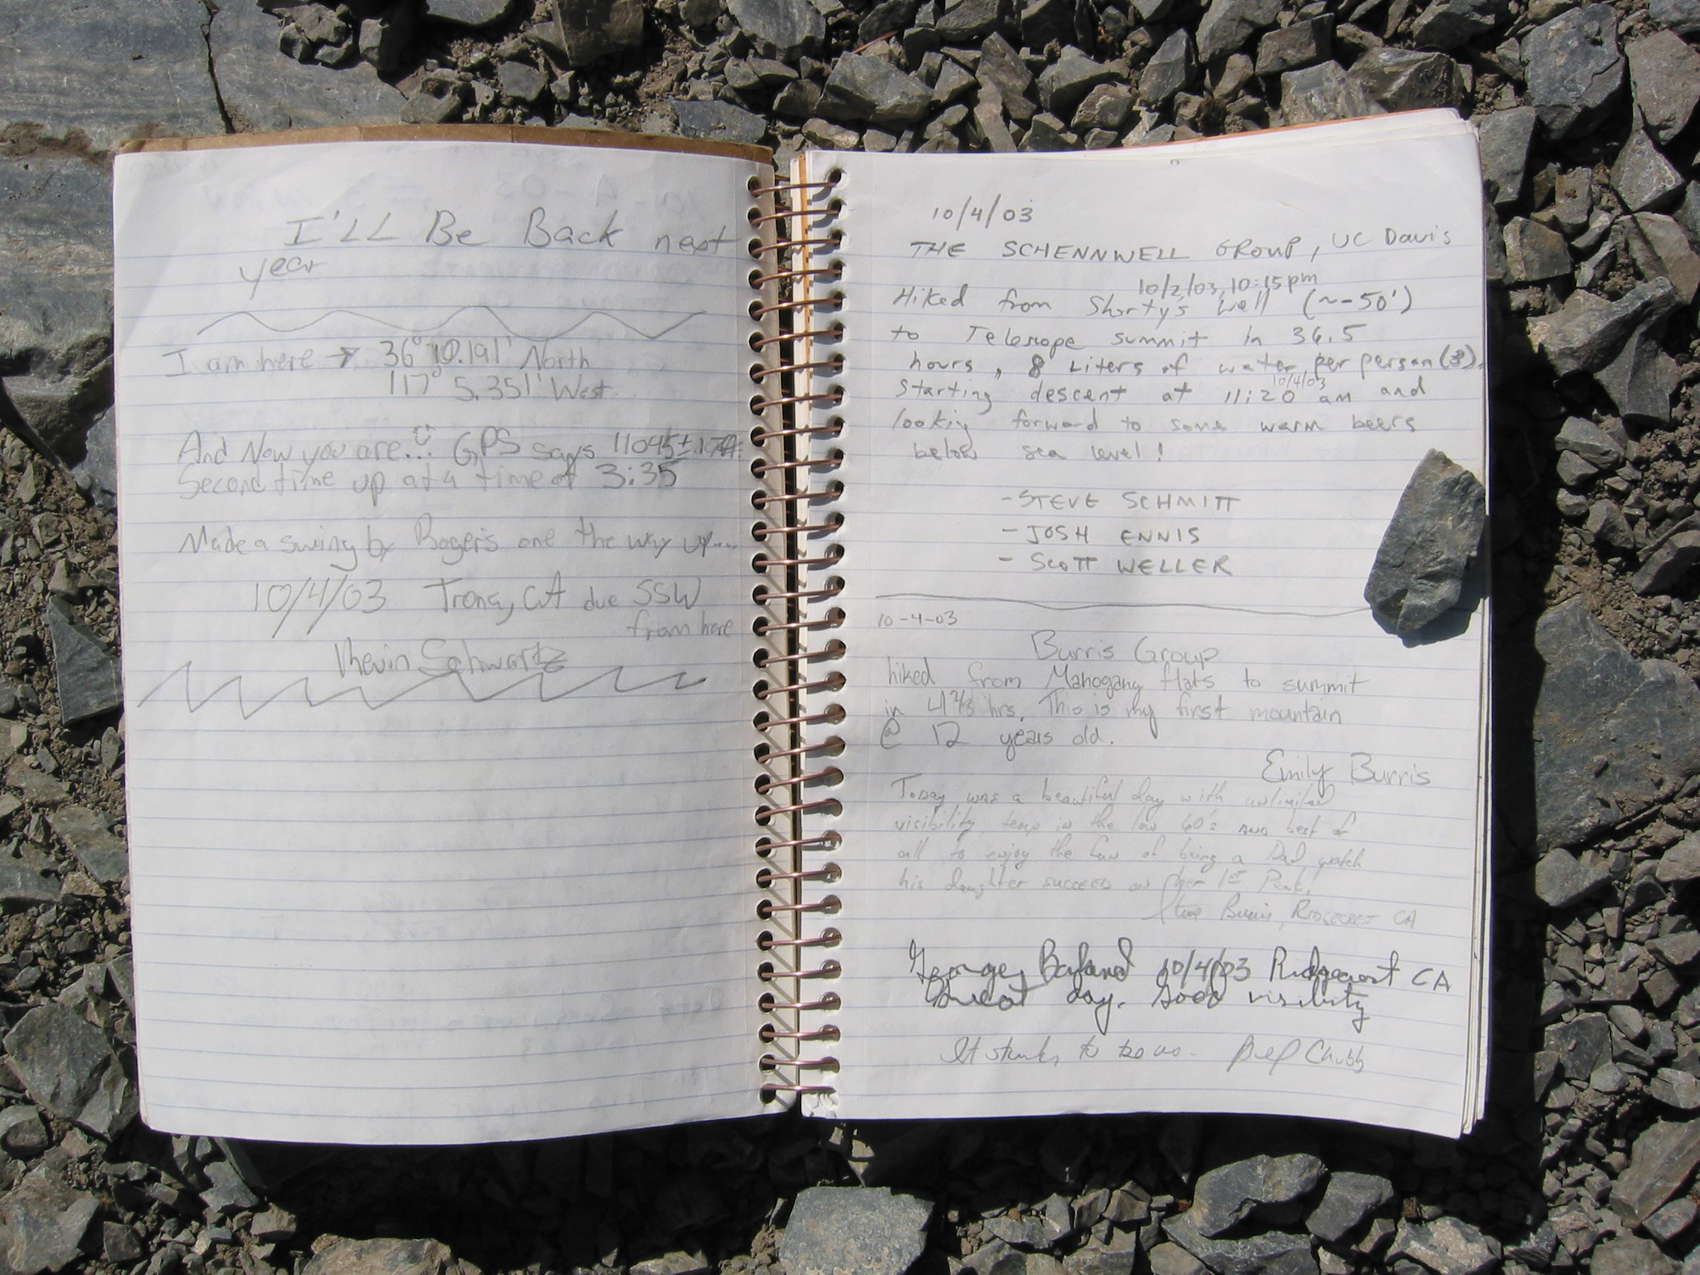 I'LL Be Back next
year
I am here → 36° 10.191' North
117° 5.351' West
And Now you are.. GPS says 11045±
Second time up at a time of 3:35
Made a swing by Rogers one the way up....
10/4/03 Trona, CA due SSW
from here
Kevin Schwartz
10/4/03
THE SCHENNWELL GROUP, UC Davis
10/2/03, 10:15pm
Hiked from Shorty's Well (~-50')
to Telescope summit in 36.5
hours, 8 Liters of water per person (3).
10/4/03
Starting descent at 11:20 am and
looking forward to some warm beers
below sea level!
- STEVE SCHMITT
- JOSH ENNIS
- SCOTT WELLER
10-4-03
Burris Group
hiked from Mahogany flats to summit
in 4 2/3 hrs. This is my first mountain
@ 12 years old.
Emily Burris
Today was a beautiful day with unlimited
visibility, temp in the low 60's and best of
all to enjoy the fun of being a Dad watch
his daughter succeed on her 1st Peak.
Burris, RIDGECREST CA
George 10/4/03 Ridgecrest CA
Great day. Good visibility
It to Chubb